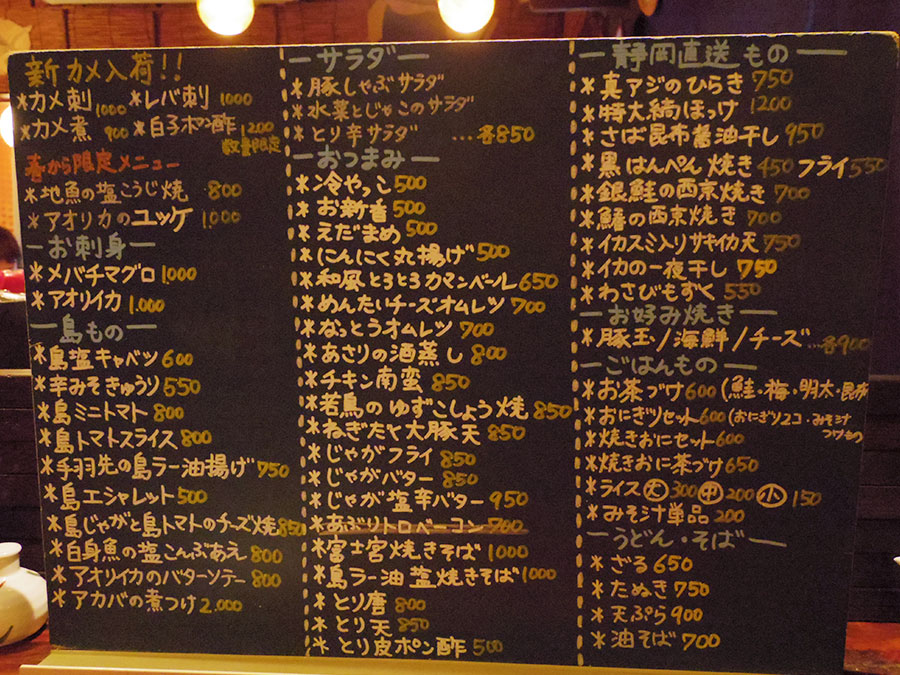 新カメ入荷!!
*カメ刺 1000 *レバ刺 1000
*カメ煮 900 *白子ポン酢 1200
数量限定
春から限定メニュー
*地魚の塩こうじ焼 800
*アオリイカのユッケ 1.000
ーお刺身ー
*メバチマグロ 1.000
*アオリイカ 1.000
ー島ものー
*島塩キャベツ 600
*辛みそきゅうり 550
*島ミニトマト 800
*島トマトスライス 800
*手羽先の島ラー油揚げ 750
*島エシャレット 500
*島じゃがと島トマトのチーズ焼 850
*白身魚の塩こんぶあえ 800
*アオリイカのバターソテー 800
*アカバの煮つけ 2.000
ーサラダー
*豚しゃぶサラダ
*水菜とじゃこのサラダ
*とり辛サラダ …各850
ーおつまみー
*冷やっこ 500
*お新香 500
*えだまめ 500
*にんにく丸揚げ 500
*和風とろとろカマンベール 650
*めんたいチーズオムレツ 700
*なっとうオムレツ 700
*あさりの酒蒸し 800
*チキン南蛮 850
*若鳥のゆずこしょう焼 850
*ねぎたや大豚天 850
*じゃがフライ 850
*じゃがバター 850
*じゃが塩辛バター 950
*あぶりトロベーコン 700
*富士宮焼きそば 1000
*島ラー油塩焼きそば 1000
*とり唐 800
*とり天 850
*とり皮ポン酢 500
ー静岡直送ものー
*真アジのひらき 750
*特大縞ほっけ 1200
*さば昆布醤油干し 950
*黒はんぺん焼き 450 フライ 550
*銀鮭の西京焼き 700
*鰆の西京焼き 700
*イカスミ入りサキイカ天 750
*イカの一夜干し 750
*わさびもずく 550
ーお好み焼きー
*豚玉/海鮮/チーズ …各900
ーごはんものー
*お茶づけ 600 (鮭・梅・明太・昆布
*おにぎりセット 600 (おにぎり2コ・みそ汁
つけもの
*焼きおにセット 600
*焼きおに茶づけ 650
*ライス 大 300 中 200 小 150
*みそ汁単品 200
ーうどん・そばー
*ざる 650
*たぬき 750
*天ぷら 900
*油そば 700